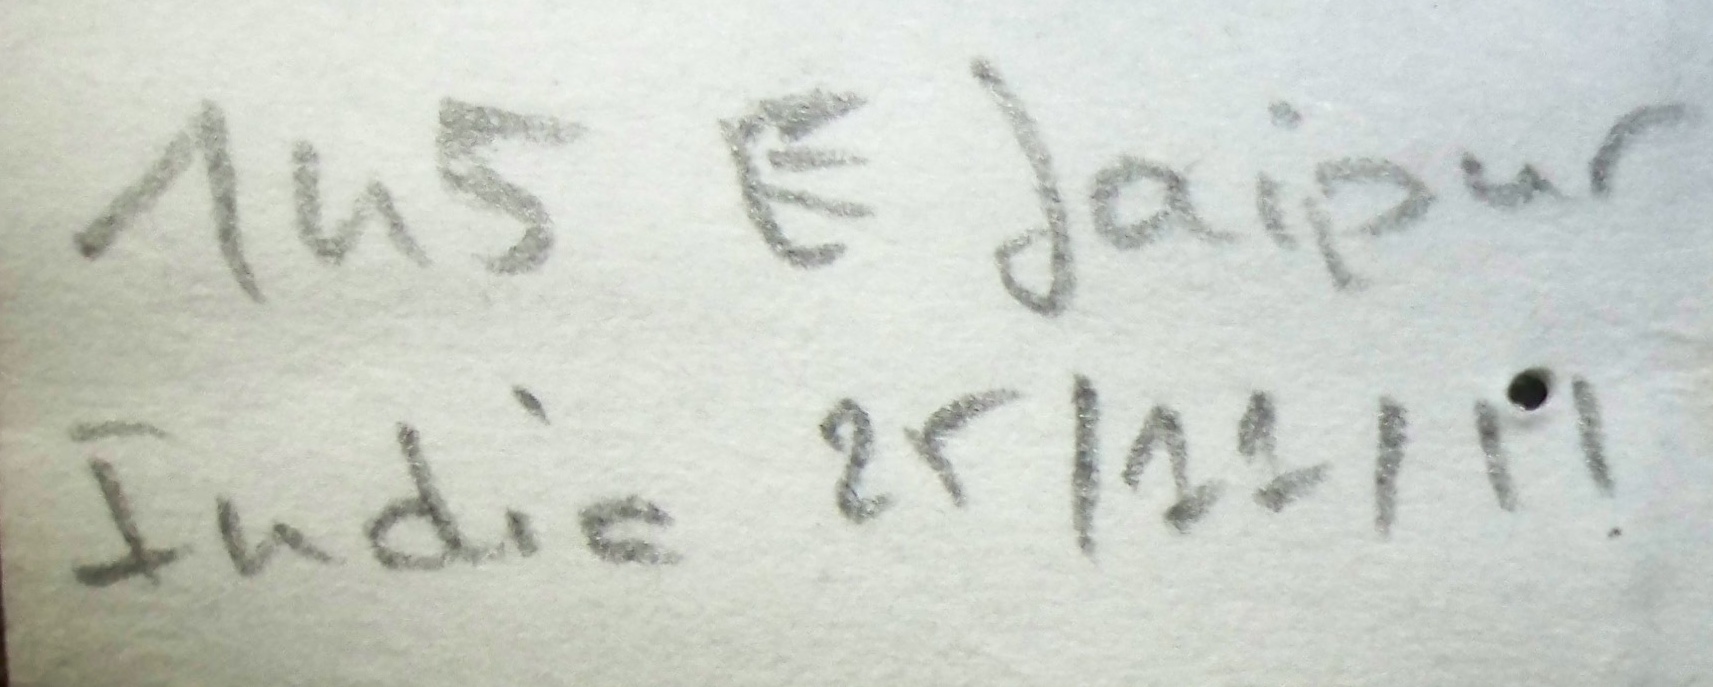 145 E Jaipur
India 25/11/11